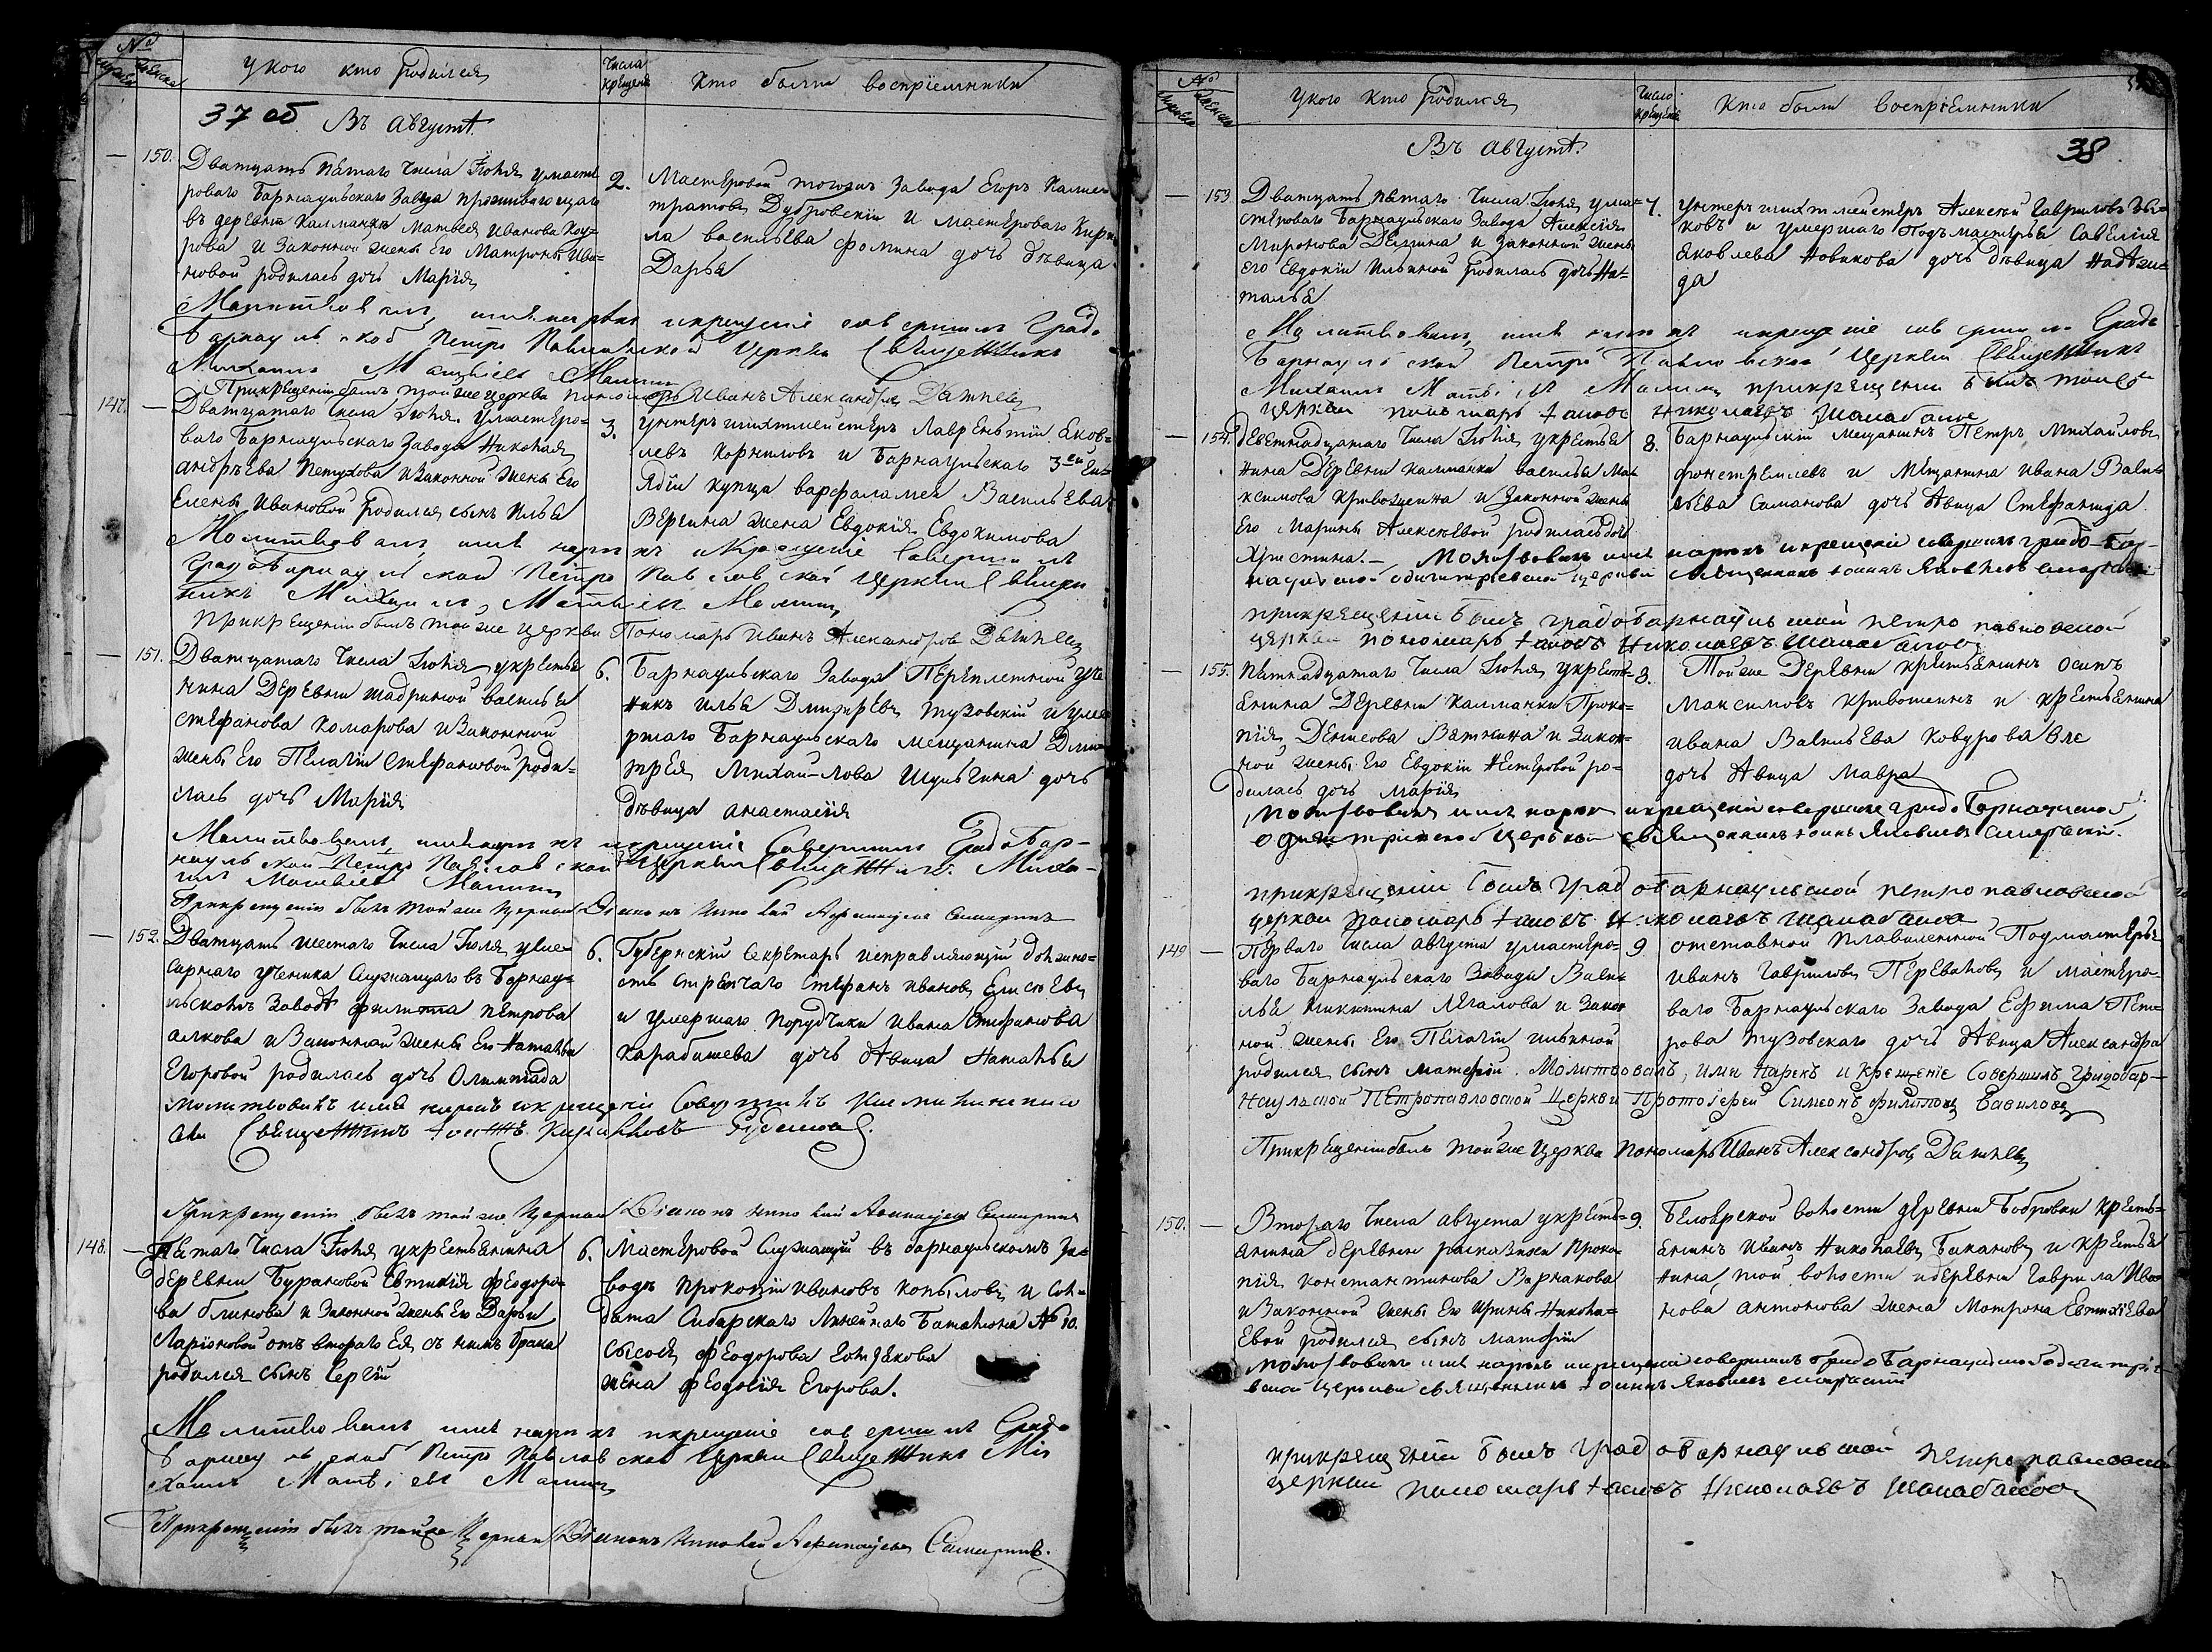 №
У кого кто родился
Числа крещенія
Кто были воспріемники
37 об
Въ августѣ.
150.
Дватцать пятаго числа Іюля у мастероваго Барнаульскаго Завода проживающаго
въ деревнѣ Калманкѣ Матвея Иванова
и законной жены его Матроны Ивановой родилась дочь Марія
2.
Мастеровой тогожъ Завода Егоръ
Дубровскій и мастероваго Кирила Васильева Фомина дочь дѣвица
Дарья
Молитвовалъ, имя нарекъ и крещеніе совершилъ Градо
Барнаульской Петро Павловской Церкви Священникъ
Михаилъ Матвіевъ
При крещеніи былъ той же церкви пономарь Иванъ Александровъ
147.
Дватцатаго числа Іюля у мастеро-
ваго Барнаульскаго Завода Николая
Андрѣева Петухова и законной жены его
Елены Ивановой родился сынъ Илья
3.
Унтеръ шихтмейстеръ Лаврентій Яков-
левъ Корниловъ и Барнаульскаго 3ей
купца Варфаламея Васильева
жена Евдокія Евдокимова
Молитвовалъ, имя нарекъ и Крещеніе Совершилъ
Градо Барнаульской Петро Павловской Церкви Священ
никъ Михаилъ Матвіевъ
При крещеніи былъ той же церкви Пономарь Иванъ Александровъ
151.
Дватцатаго числа Іюля у крестья-
нина деревни Шадриной Василья
Стефанова Комарова и законной
жены его Пелагіи Стефановой роди-
лась дочь Марія
6.
Барнаульскаго Завода Переплетной уче
никъ Илья Дмитріевъ Тузовскій и уме
ршаго Барнаульскаго мещанина Дми
трея Михайлова Шульгина дочь
дѣвица Анастасія
Молитвовалъ, имя нарекъ и крещеніе Совершилъ Градо Бар-
наульской Петро Павловской Церкви Священникъ Миха-
илъ Матвіевъ
При крещеніи былъ той же Церкви Діаконъ
152.
Дватцать шестаго числа Іюля у
ученика Служащаго въ Барнау-
льскомъ Заводѣ Филиппа Петрова
и законной жены его Натальи
Егоровой родилась дочь Олимпіада
6.
Губернскій Секретарь исправляющій должно-
сть Стряпчаго Стефанъ Ивановъ Елисѣевъ
и умершаго Порудчика Ивана Стефанова
Карабишева дочь дѣвица Наталья
Молитвовалъ имя нарекъ и крещеніе Совершилъ
Священникъ
При крещеніи былъ той же Церкви Діаконъ
148.
Пятаго числа Іюля у крестьянина
деревни Бурановой Евтихія Феодоро-
ва Блинова и законной жены его Дарьи
Ларіоновой отъ втораго ея съ нимъ брака
родился сынъ Сергій
6.
Мастеровой Служащій въ Барнаульскомъ За-
водѣ Прокопій Ивановъ Копыловъ и Сол-
дата Сибирскаго Линейнаго Баталіона № 10.
Сысоя Феодорова
жена Феодосія Егорова.
Молитвовалъ имя нарекъ и крещеніе совершилъ Градо
Барнаульской Петро Павловской Церкви Священникъ Ми
хаилъ Матвіевъ
При крещеніи былъ той же Церкви Діаконъ
№
У кого кто родился
Число крещенія
Кто были воспріемники
Въ августѣ.
38
153
Дватцать пятаго числа Іюля у ма-
стероваго Барнаульскаго Завода Алексія
Миронова и законной жены
его Евдокіи Ильиной родилась дочь На-
талья
7.
Унтеръ шихтмейстеръ Алексѣй Гавриловъ
и умершаго Подмастерья Савелія
Яковлева Новикова дочь дѣвица Надѣж-
да
Молитвовалъ, имя нарекъ и крещеніе совершилъ Градо
Барнаульской Петро Павловской Церкви Священникъ
Михаилъ Матвіевъ при крещеніи былъ той же
церкви пономарь Іаковъ Николаевъ Шалабановъ
154.
Девятнадцатаго числа Іюля у крестья
нина деревни Калманки Василья Ма
ксимова Кривошеина и законной жены
его Марины Алексѣевой родилась дочь
Христина. – Молитвовалъ имя нарекъ и крещеніе совершилъ градо-Бар-
наульской Одигитріевской церкви священникъ Іоаннъ Яковлевъ
8.
Барнаульскій мещанинъ Петръ Михайловъ
и мещанина Ивана Васи
льева дочь дѣвица Стефанида.
При крещеніи былъ градо Барнаульской петро павловской
церкви пономарь Іаковъ Николаевъ Шалабановъ
155.
Пятнадцатаго числа Іюля у крест-
янина деревни Калманки Проко-
пія Денисова Вяткина и закон-
ной жены его Евдокіи Нестеровой ро-
дилась дочь Марія
8.
Той же деревни крестьянинъ Осипъ
Максимовъ Кривошеинъ и крестьянина
Ивана Васильева
дочь дѣвица Мавра
Молитвовалъ имя нарекъ и крещеніе совершилъ градо Барнаульской
Одигитріевской церкви священникъ Іоаннъ Яковлевъ
При крещеніи былъ градо Барнаульской петро павловской
церкви пономарь Іаковъ Николаевъ Шалабановъ
149
Перваго числа августа у мастеро-
ваго Барнаульскаго Завода Васи-
лья Никитина Легалова и закон
ной жены его Пелагіи Ильиной
родился сынъ Матфій. Молитвовалъ, имя нарекъ и крещеніе Совершилъ градобар-
наульской Петропавловской Церкви Протоіерей Симеонъ Филиповъ Вавиловъ
9
Отставной плавиленной Подмастерья
Иванъ Гавриловъ Переваловъ и мастеро-
ваго Барнаульскаго Завода Ефима Пет-
рова Тузовскаго дочь дѣвица Александра
При крещеніи былъ той же Церкви пономарь Иванъ Александровъ
150.
Втораго числа августа у кресть-
янина деревни Расказихи Проко-
пія Константинова Варнакова
и законной жены его Ирины Никола-
евой родился сынъ Матфій
9.
Белоярской волости деревни Бобровки кресть-
янинъ Иванъ Николаевъ и крестья
нина той волости и деревни Гаврила Ива-
нова Антонова жена Матрона Евтихіева
Молитвовалъ имя нарекъ и крещеніе совершилъ градо Барнаульской Одигитріе-
вской церкви священникъ Іоаннъ Яковлевъ
При крещеніи былъ градо Барнаульской петро павловской
церкви пономарь Іаковъ Николаевъ Шалабановъ